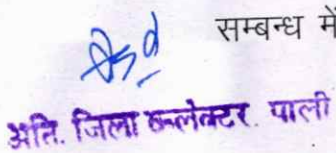 सम्बन्ध में
अति. जिला कलेक्टर. पाली